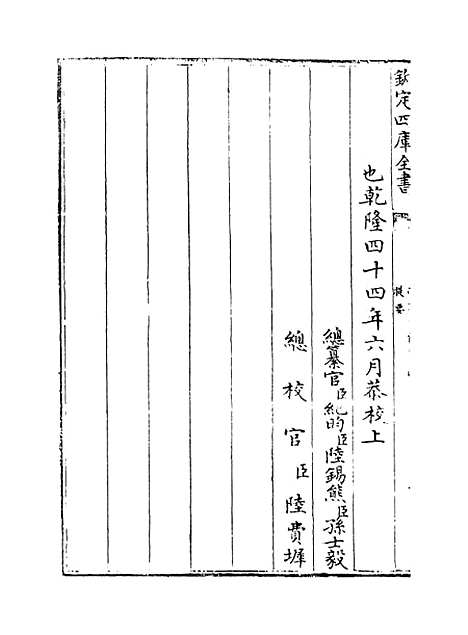 欽定四庫全書
提要
也乾隆四十四年六月恭校上
總纂官臣紀昀臣陸錫熊臣孫士毅
總校官臣陸費墀